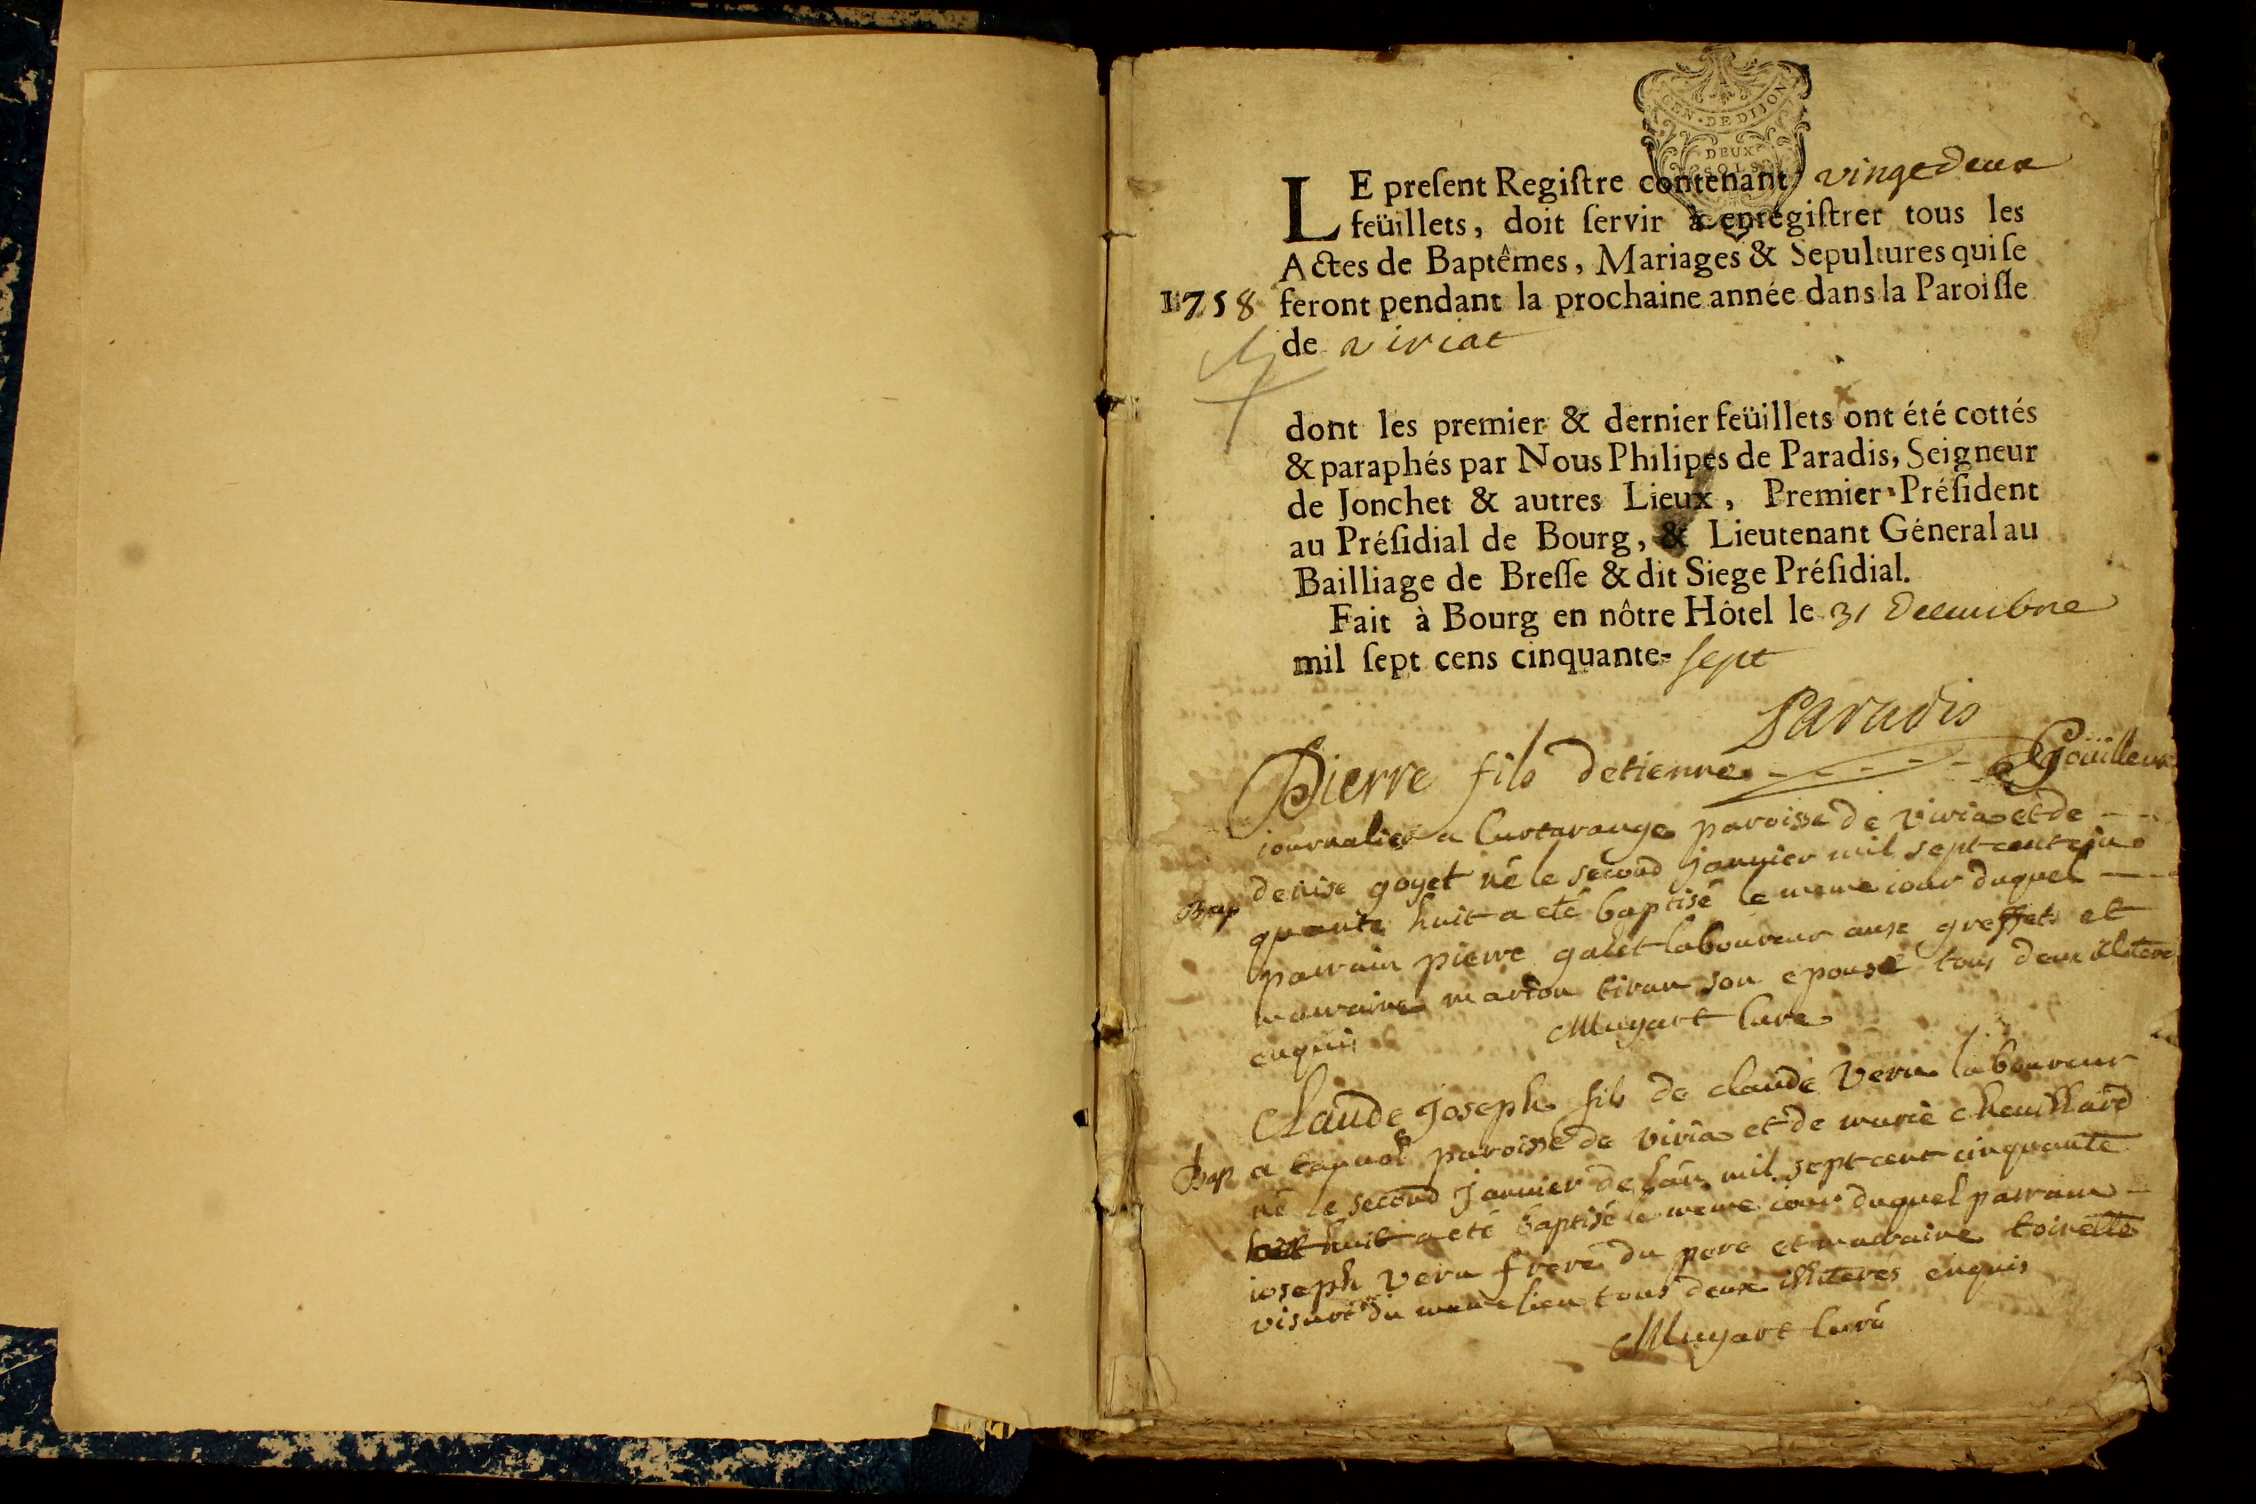 GEN · DE DIJON
DEUX
SOLS
LE preſent Regiſtre contenant vingt deux
feüillets, doit ſervir à enregiſtrer tous les
Actes de Baptêmes, Mariages & Sepultures qui ſe
1758 feront pendant la prochaine année dans la Paroiſſe
de viriat
dont les premier & dernier feüillets ont été cottés
& paraphés par Nous Philipes de Paradis, Seigneur
de Jonchet & autres Lieux, Premier Préſident
au Préſidial de Bourg, & Lieutenant Géneral au
Bailliage de Breſſe & dit Siege Préſidial.
Fait à Bourg en nôtre Hôtel le 31 Decembre
mil ſept cens cinquante- sept
Paradis
Pierre fils detienne Goüilleux
journalier a Curtarange paroisse de viria et de
denise goyet né le second janvier mil sept cent cin
Bap quante huit a eté baptisé le meme iour duquel
parrain pierre galet laboureur aux greffets et
marraine marion tiran son epouse tous deux illiteres
enquis Muyart Curé
Claude joseph fils de claude veru laboureur
Bap a tapnol paroisse de viria et de marie cheuillard
né le second janvier de l'an mil sept cent cinquante
huit a eté baptisé le meme iour duquel parrain
ioseph veru frere du pere et marraine toinette
du meme lieu tous deux illiteres enquis
Muyart Curé